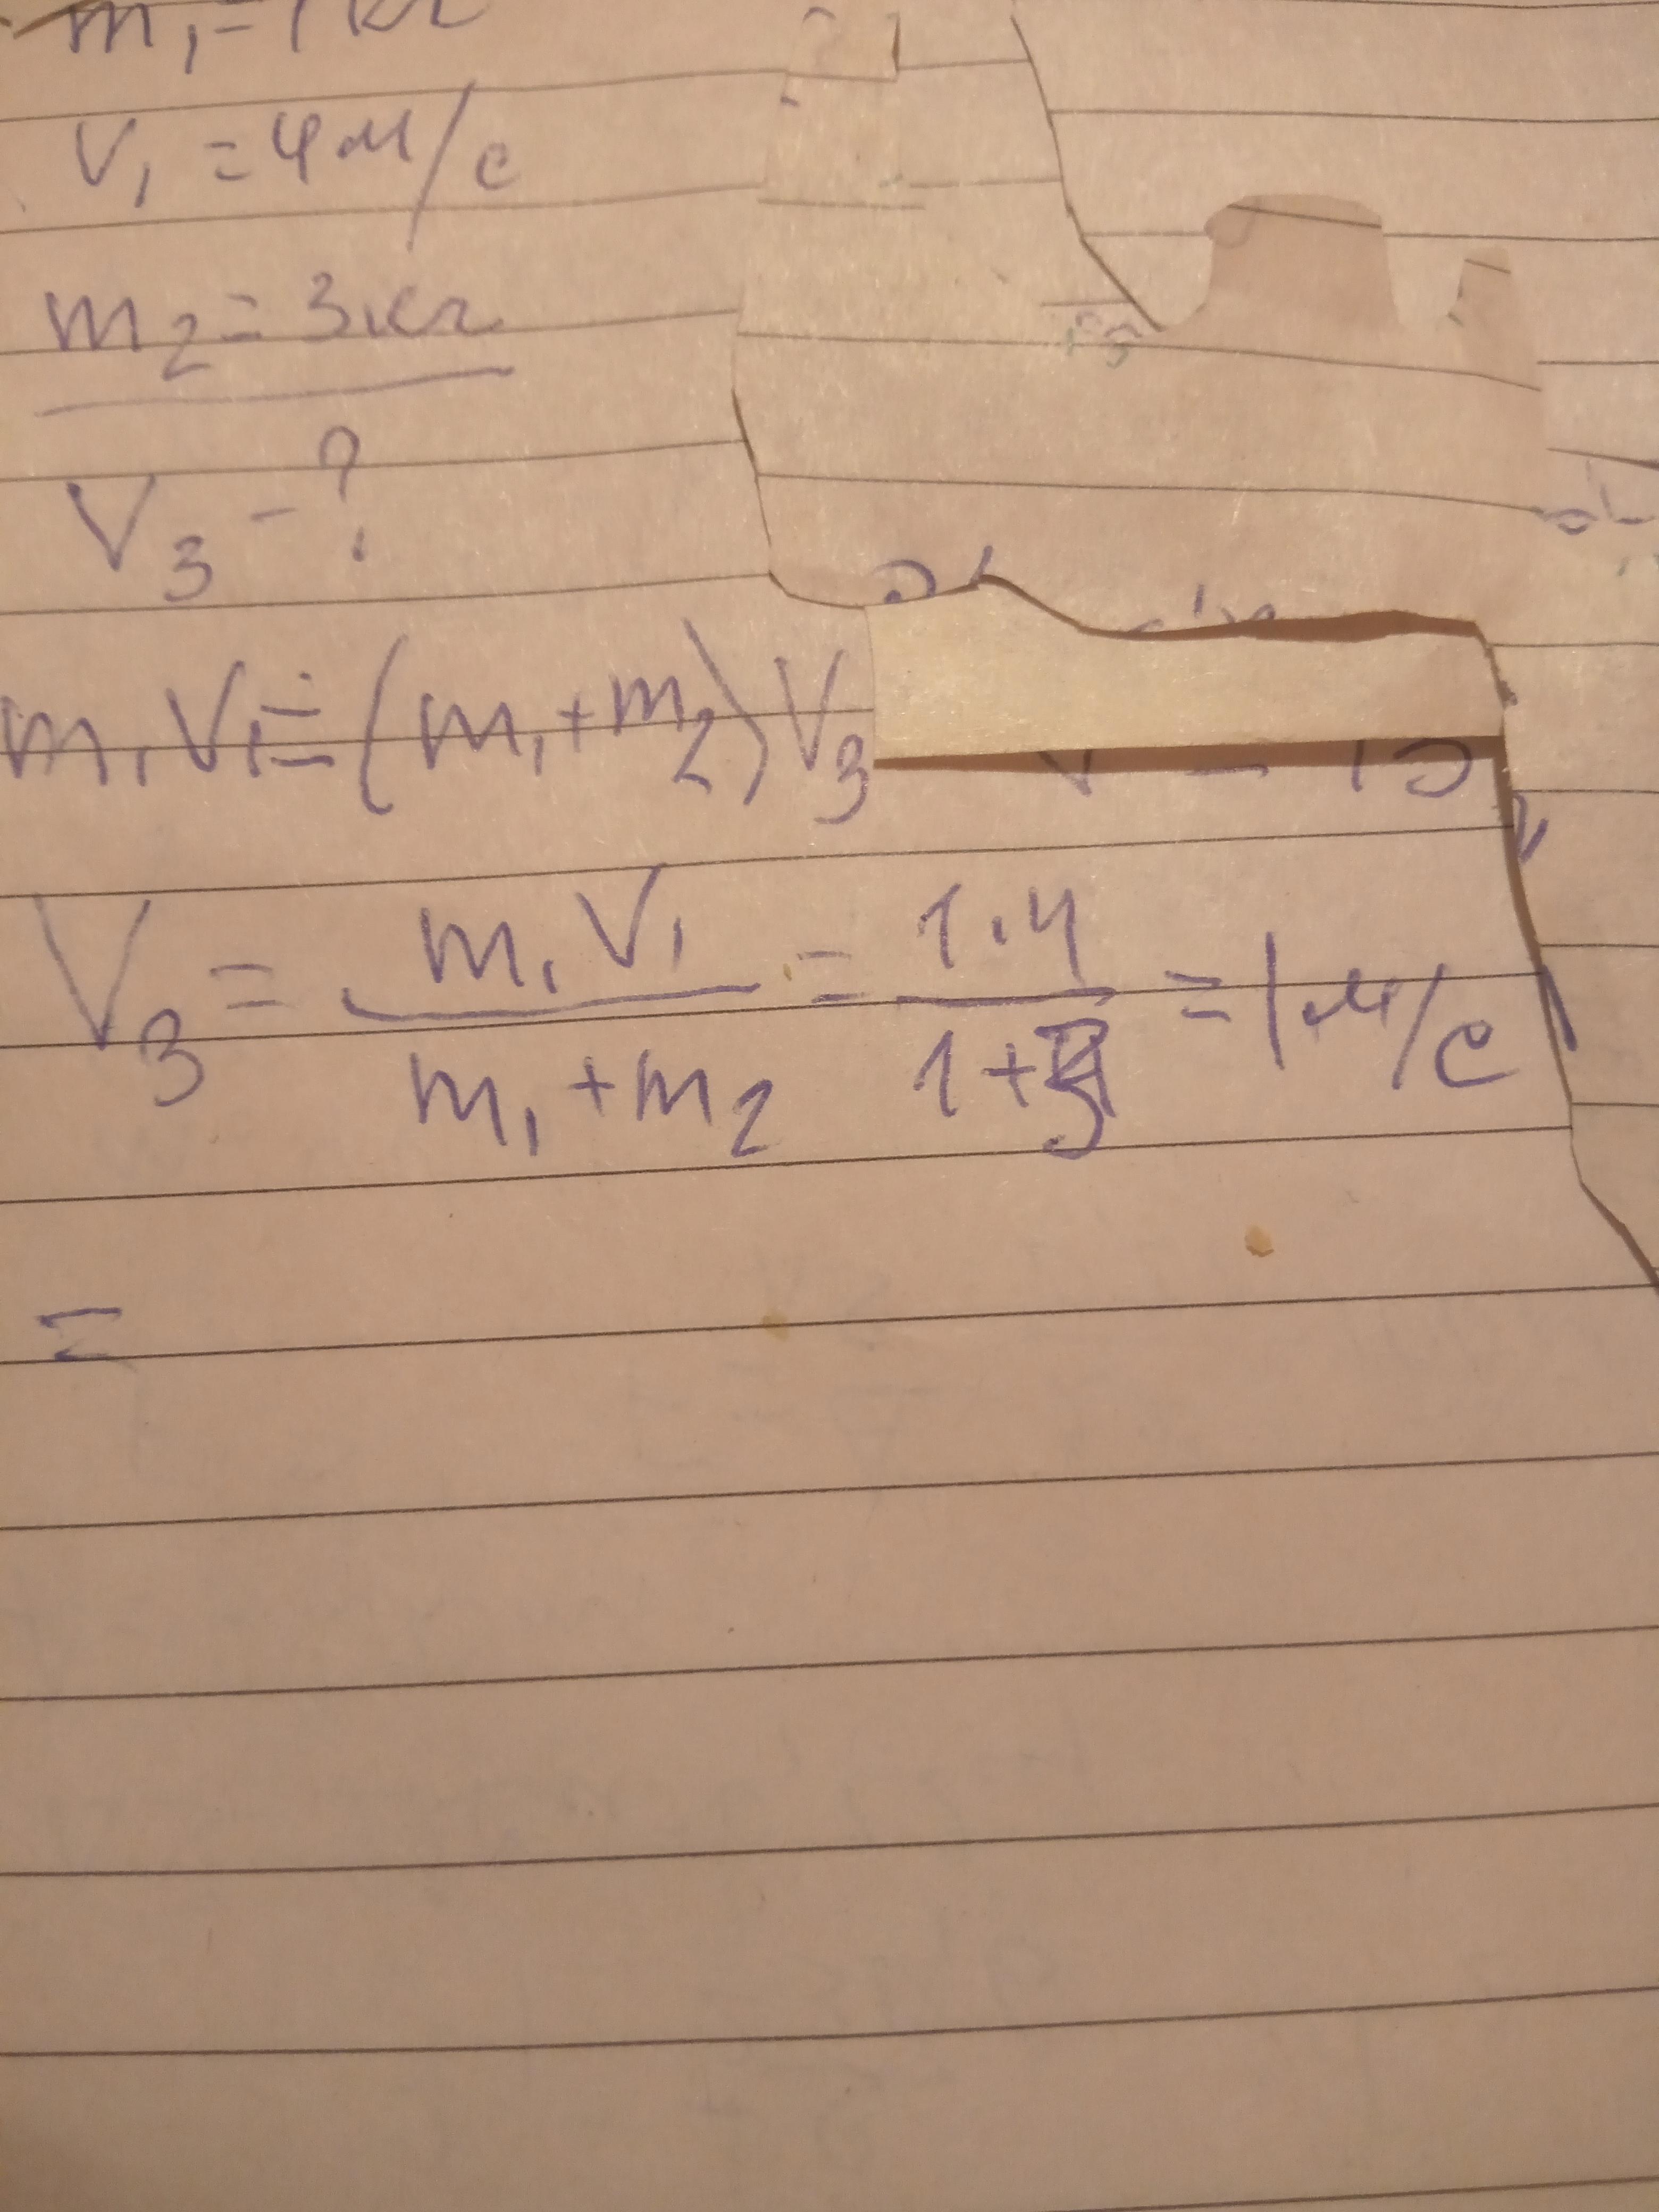 m₁ = 1 кг
V₁ = 4 м/с
m₂ = 3 кг
V₃ - ?
m₁ V₁ = (m₁ + m₂) V₃
V₃ = m₁ V₁ / m₁ + m₂ = 1 · 4 / 1 + 3 = 1 м/с
=